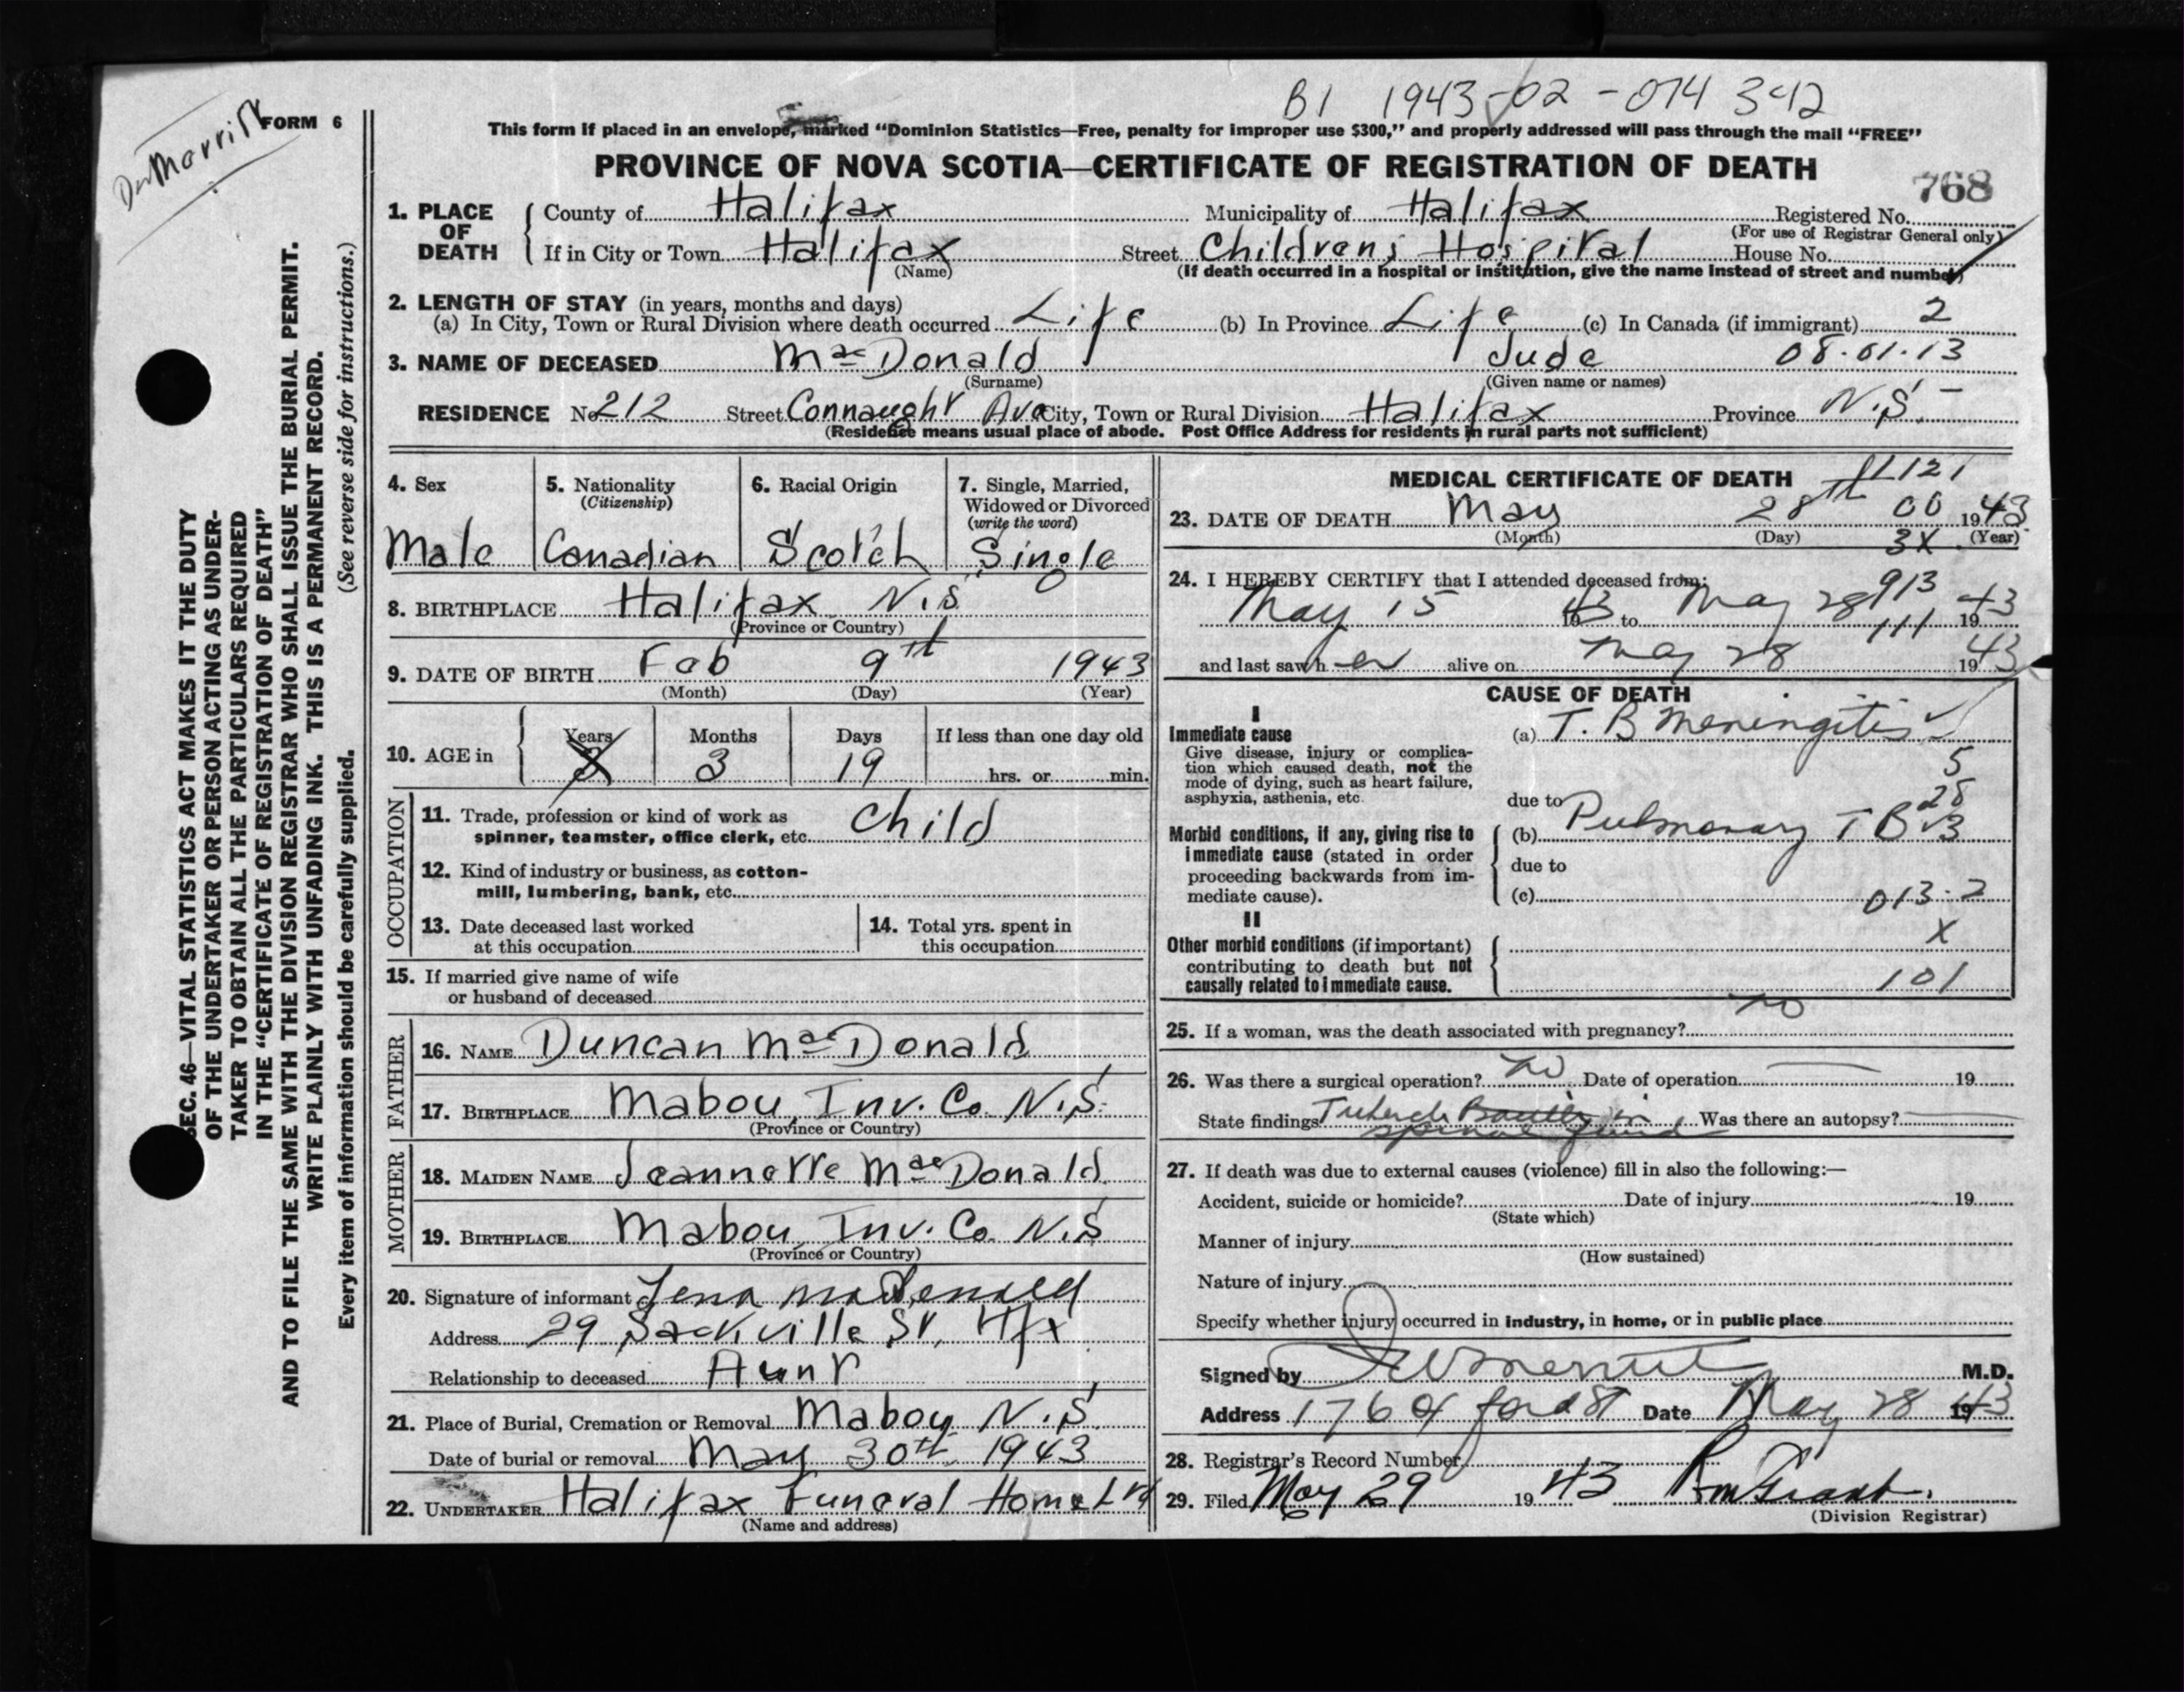 B1 1943-02-014342
Dr Merritt
FORM 6
This form if placed in an envelope, marked “Dominion Statistics—Free, penalty for improper use $300,” and properly addressed will pass through the mail “FREE”
PROVINCE OF NOVA SCOTIA—CERTIFICATE OF REGISTRATION OF DEATH
768
1. PLACE OF DEATH { County of Halifax Municipality of Halifax Registered No.
(For use of Registrar General only)
If in City or Town Halifax Street Childrens Hospital House No.
(Name) (If death occurred in a hospital or institution, give the name instead of street and number)
2. LENGTH OF STAY (in years, months and days)
(a) In City, Town or Rural Division where death occurred Life (b) In Province Life (c) In Canada (if immigrant) 2
3. NAME OF DECEASED MacDonald Jude 08.01.13
(Surname) (Given name or names)
RESIDENCE No 212 Street Connaught Ave City, Town or Rural Division Halifax Province N.S.
(Residence means usual place of abode. Post Office Address for residents in rural parts not sufficient)
4. Sex 5. Nationality 6. Racial Origin 7. Single, Married,
(Citizenship) Widowed or Divorced
(write the word)
Male Canadian Scotch Single
8. BIRTHPLACE Halifax N.S.
(Province or Country)
9. DATE OF BIRTH Feb 9th 1943
(Month) (Day) (Year)
10. AGE in { Years Months Days If less than one day old
3 19 hrs. or min.
OCCUPATION
11. Trade, profession or kind of work as
spinner, teamster, office clerk, etc. Child
12. Kind of industry or business, as cotton-
mill, lumbering, bank, etc.
13. Date deceased last worked 14. Total yrs. spent in
at this occupation this occupation
15. If married give name of wife
or husband of deceased
FATHER
16. NAME Duncan MacDonald
17. BIRTHPLACE Mabou, Inv. Co. N.S.
(Province or Country)
MOTHER
18. MAIDEN NAME Jeannette MacDonald
19. BIRTHPLACE Mabou Inv. Co. N.S
(Province or Country)
20. Signature of informant Lena MacDonald
Address 29 Sackville St, Hfx
Relationship to deceased Aunt
21. Place of Burial, Cremation or Removal Mabou N.S.
Date of burial or removal May 30th 1943
22. UNDERTAKER Halifax Funeral Home Ltd
(Name and address)
MEDICAL CERTIFICATE OF DEATH
23. DATE OF DEATH May 28th 00 1943
(Month) (Day) 3X (Year)
24. I HEREBY CERTIFY that I attended deceased from:
913
May 15 43 to May 28 1943
111
and last saw h er alive on May 28 1943
CAUSE OF DEATH
I
Immediate cause (a) T. B Meningitis
Give disease, injury or complica-
tion which caused death, not the
mode of dying, such as heart failure,
asphyxia, asthenia, etc.
5
28
due to
Morbid conditions, if any, giving rise to { (b) Pulmonary T B
immediate cause (stated in order due to
proceeding backwards from im-
mediate cause). (c) 013.2
II
X
Other morbid conditions (if important) {
contributing to death but not
causally related to immediate cause. 101
25. If a woman, was the death associated with pregnancy? no
26. Was there a surgical operation? no Date of operation — 19
State findings Tubercle Bacilli in Was there an autopsy?
spinal fluid
27. If death was due to external causes (violence) fill in also the following:—
Accident, suicide or homicide? Date of injury 19
(State which)
Manner of injury
(How sustained)
Nature of injury
Specify whether injury occurred in industry, in home, or in public place
Signed by Merritt M.D.
Address 176 Oxford St Date May 28 1943
28. Registrar’s Record Number
29. Filed May 29 1943
(Division Registrar)
SEC. 46—VITAL STATISTICS ACT MAKES IT THE DUTY
OF THE UNDERTAKER OR PERSON ACTING AS UNDER-
TAKER TO OBTAIN ALL THE PARTICULARS REQUIRED
IN THE “CERTIFICATE OF REGISTRATION OF DEATH”
AND TO FILE THE SAME WITH THE DIVISION REGISTRAR WHO SHALL ISSUE THE BURIAL PERMIT.
WRITE PLAINLY WITH UNFADING INK. THIS IS A PERMANENT RECORD.
Every item of information should be carefully supplied. (See reverse side for instructions.)